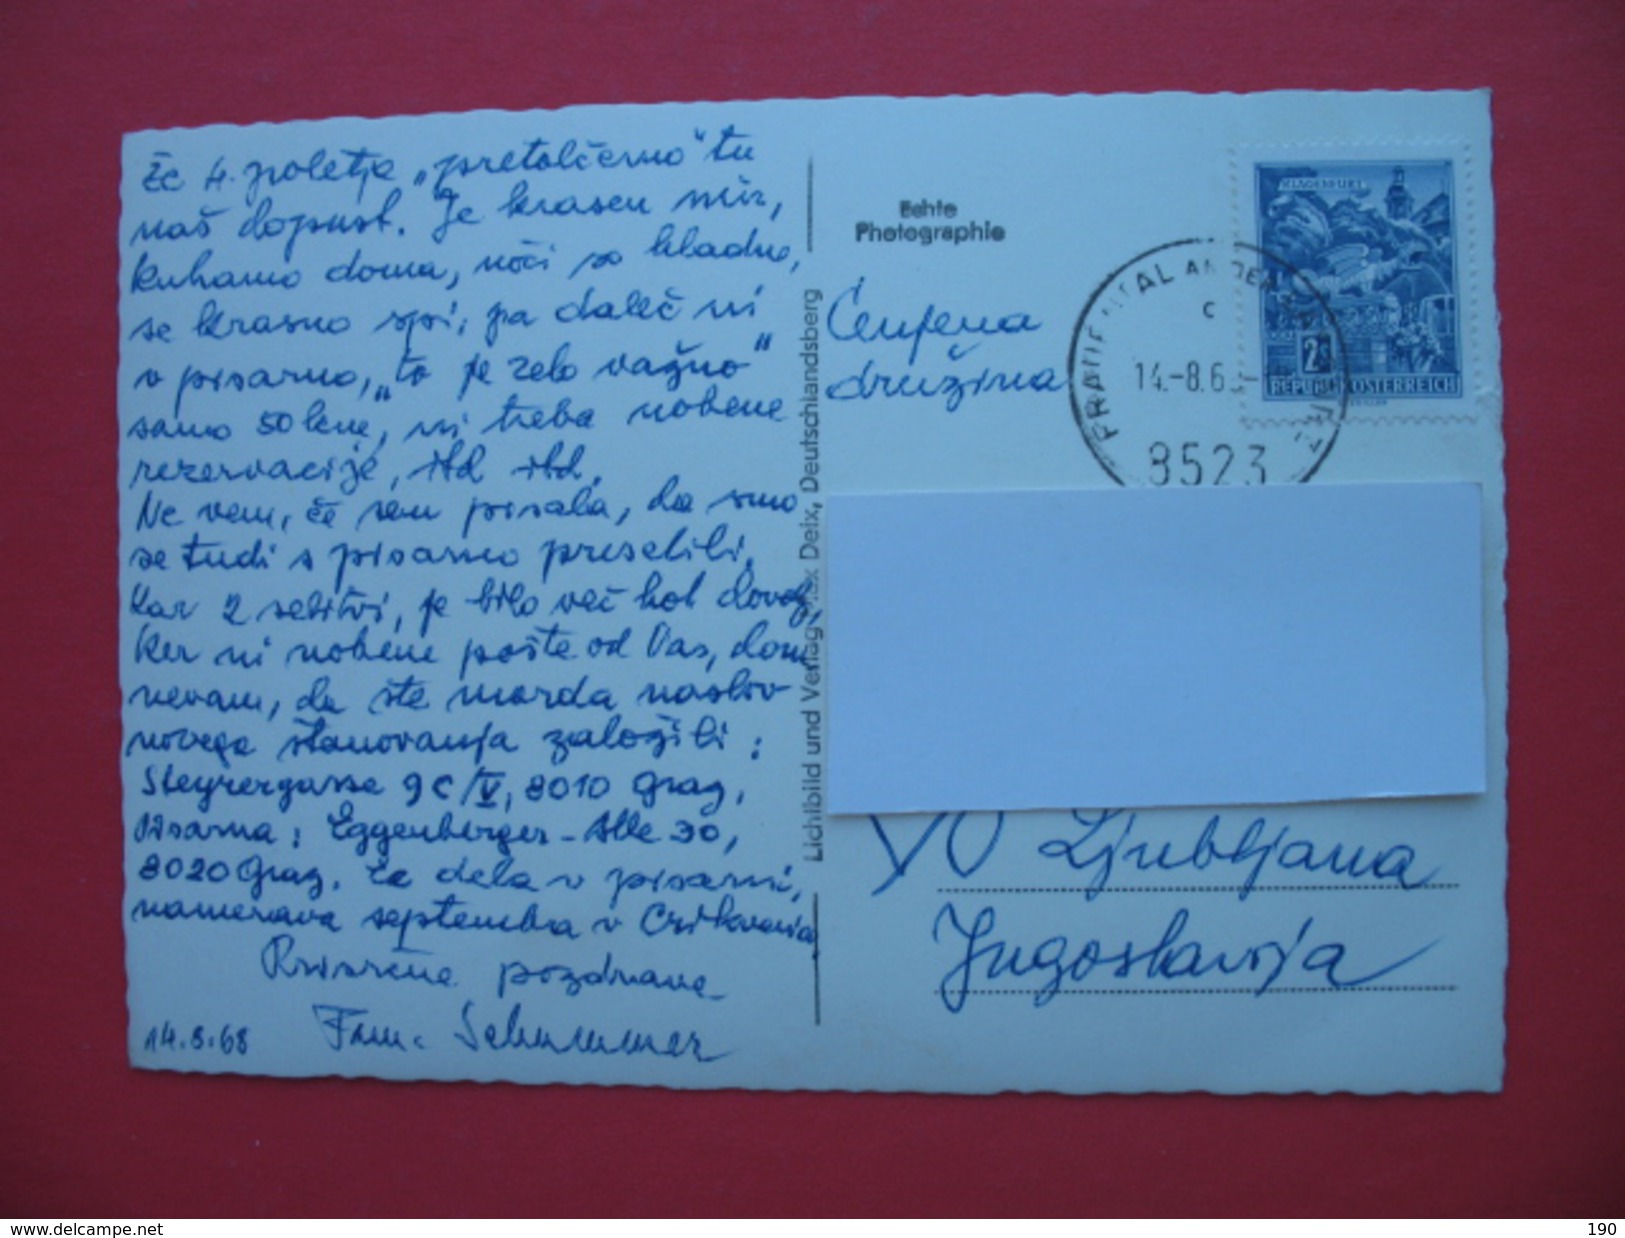 Že 4. poletje „pretolčemo" tu
naš dopust. Je krasen mir,
kuhamo doma, noči so hladne,
se krasno spi, pa daleč ni
v pisarno, „to je zelo važno"
samo 50 km, ni treba nobene
rezervacije, itd itd.
Ne vem, če sem pisala, da smo
se tudi s pisarno preselili.
Kar 2 selitvi, je bilo več kot dovolj,
ker ni nobene pošte od Vas, dom
nevam, da ste morda naslov
novega stanovanja založili:
Steyrergasse 9c/V, 8010 Graz,
Pisarna: Eggenberger-Alle 30,
8020 Graz. dela v pisarni,
namerava septembra v Crikvenico
Prisrčne pozdrave
14.8.68 Fam. Schummer
Lichtbild und Verlag Max Deix, Deutschlandsberg
Echte
Photographie
Cenjena
družina
Ljubljana
Jugoslavija
FRAUENTAL AN DER
c
14.-8.6
8523
KLAGENFURT
2
REPUBLIK ÖSTERREICH
delcampe.net
190